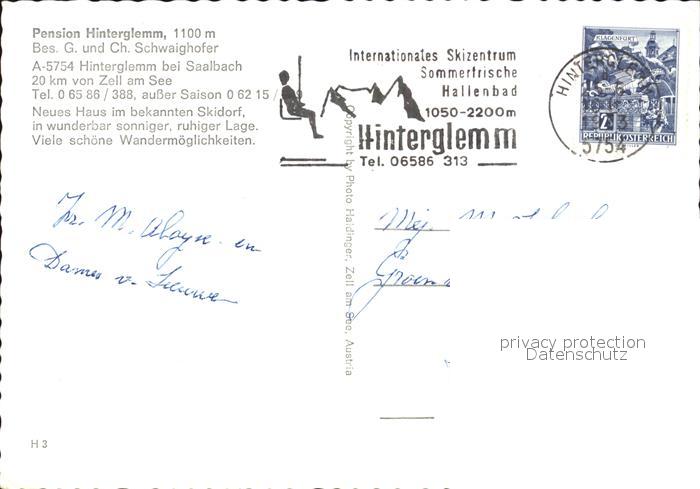 Pension Hinterglemm, 1100 m
Bes. G. und Ch. Schwaighofer
A-5754 Hinterglemm bei Saalbach
20 km von Zell am See
Tel. 0 65 86 / 388, außer Saison 0 62 15 /
Neues Haus im bekannten Skidorf,
in wunderbar sonniger, ruhiger Lage.
Viele schöne Wandermöglichkeiten.
Internationales Skizentrum
Sommerfrische
Hallenbad
1050-2200m
Hinterglemm
Tel. 06586 313
KLAGENFURT
2
REPUBLIK ÖSTERREICH
5754
Copyright by Photo Haidinger, Zell am See, Austria
Fr. M. Aloyse en
Dames v.
Mej.
privacy protection
Datenschutz
H 3